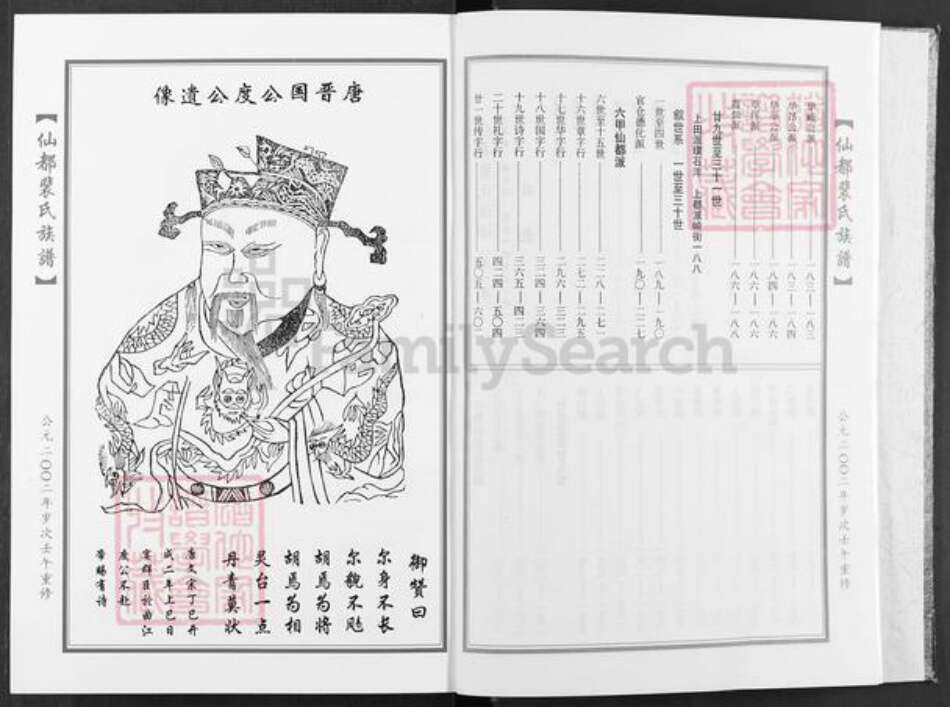 【仙都裴氏族譜】
公元二〇〇二年岁次壬午重修
华派
华郡公派
华宗公派
一八三—一八三
一八三—一八四
一八四—一八六
一八六—一八六
一八六—一八八
廿九世至三十一世
上田派璞石洋、上郡派崎街一八八
叙世系 一世至三十世
一世至四世 一八九—一九〇
官仓德化派 一九〇—二二七
六甲仙都派
六世至十五世 二二八—二七一
十六世章字行 二七二—二九五
十七世华字行 二九六—三二三
十八世国字行 三二四—三六四
十九世诗字行 三六五—四二三
二十世礼字行 四二四—五〇四
廿一世传字行 五〇五—六〇三
唐晋国公度公遗像
御赞曰
尔身不长
尔貌不飏
胡焉为将
胡焉为相
灵台一点
丹青莫状
唐文宗丁巳开
成二年上巳日
宴群臣於曲江
度公不赴
帝赐有诗
【仙都裴氏族譜】
公元二〇〇二年岁次壬午重修
FamilySearch